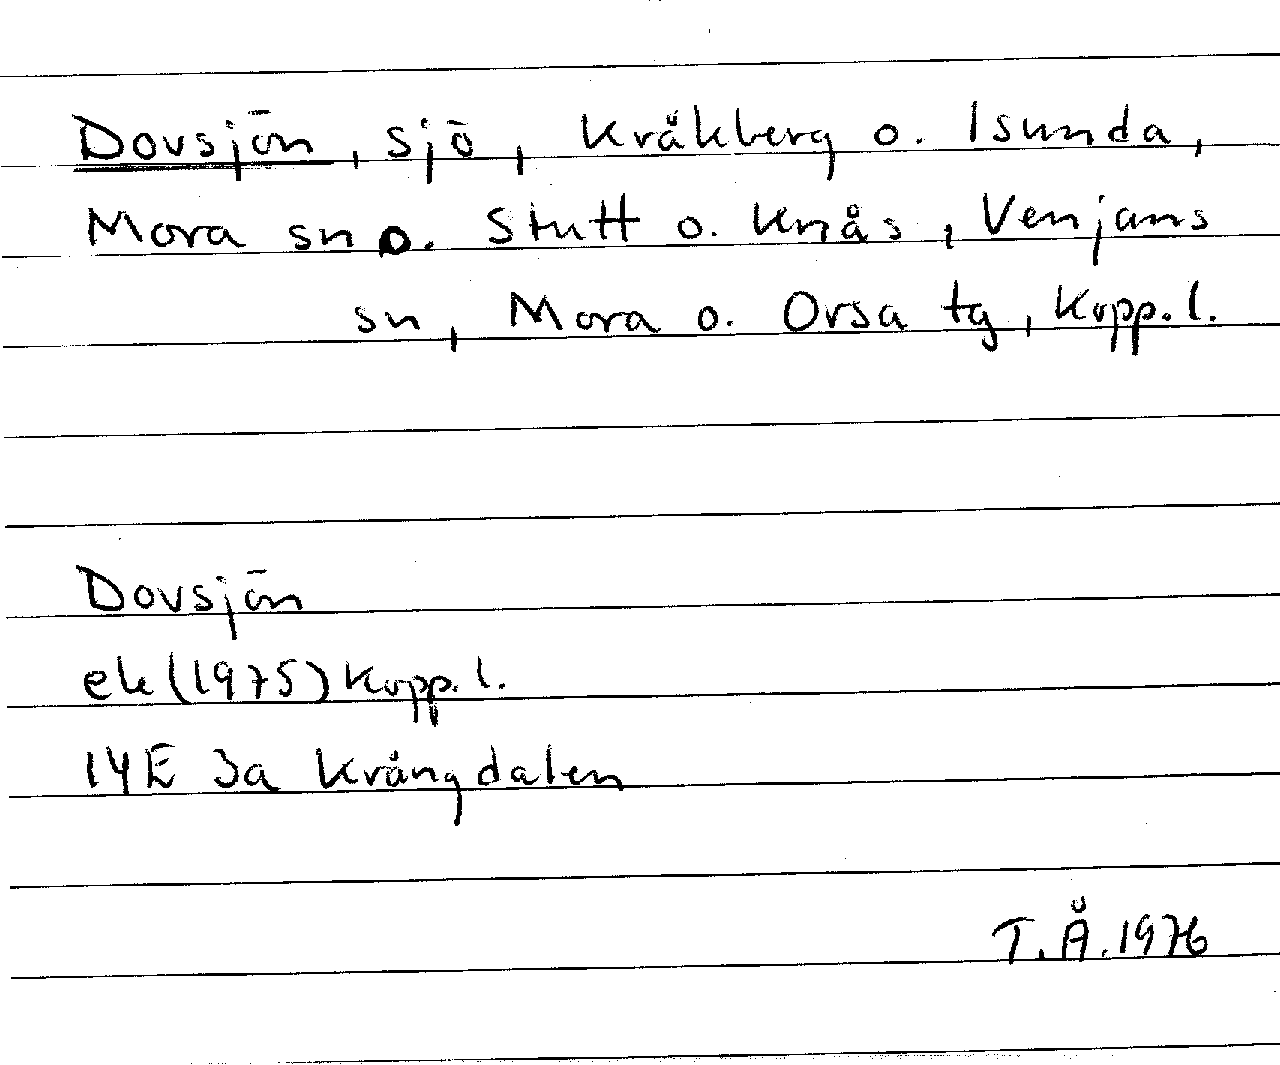 Dovsjön, sjö, Kråkberg o. Isunda,
Mora sn o. Stutt o. Knås, Venjans
sn, Mora o. Orsa tg, Kopp. l.
Dovsjön
ek (1975) Kopp. l.
14E 3a Krångdalen
T. Å. 1976